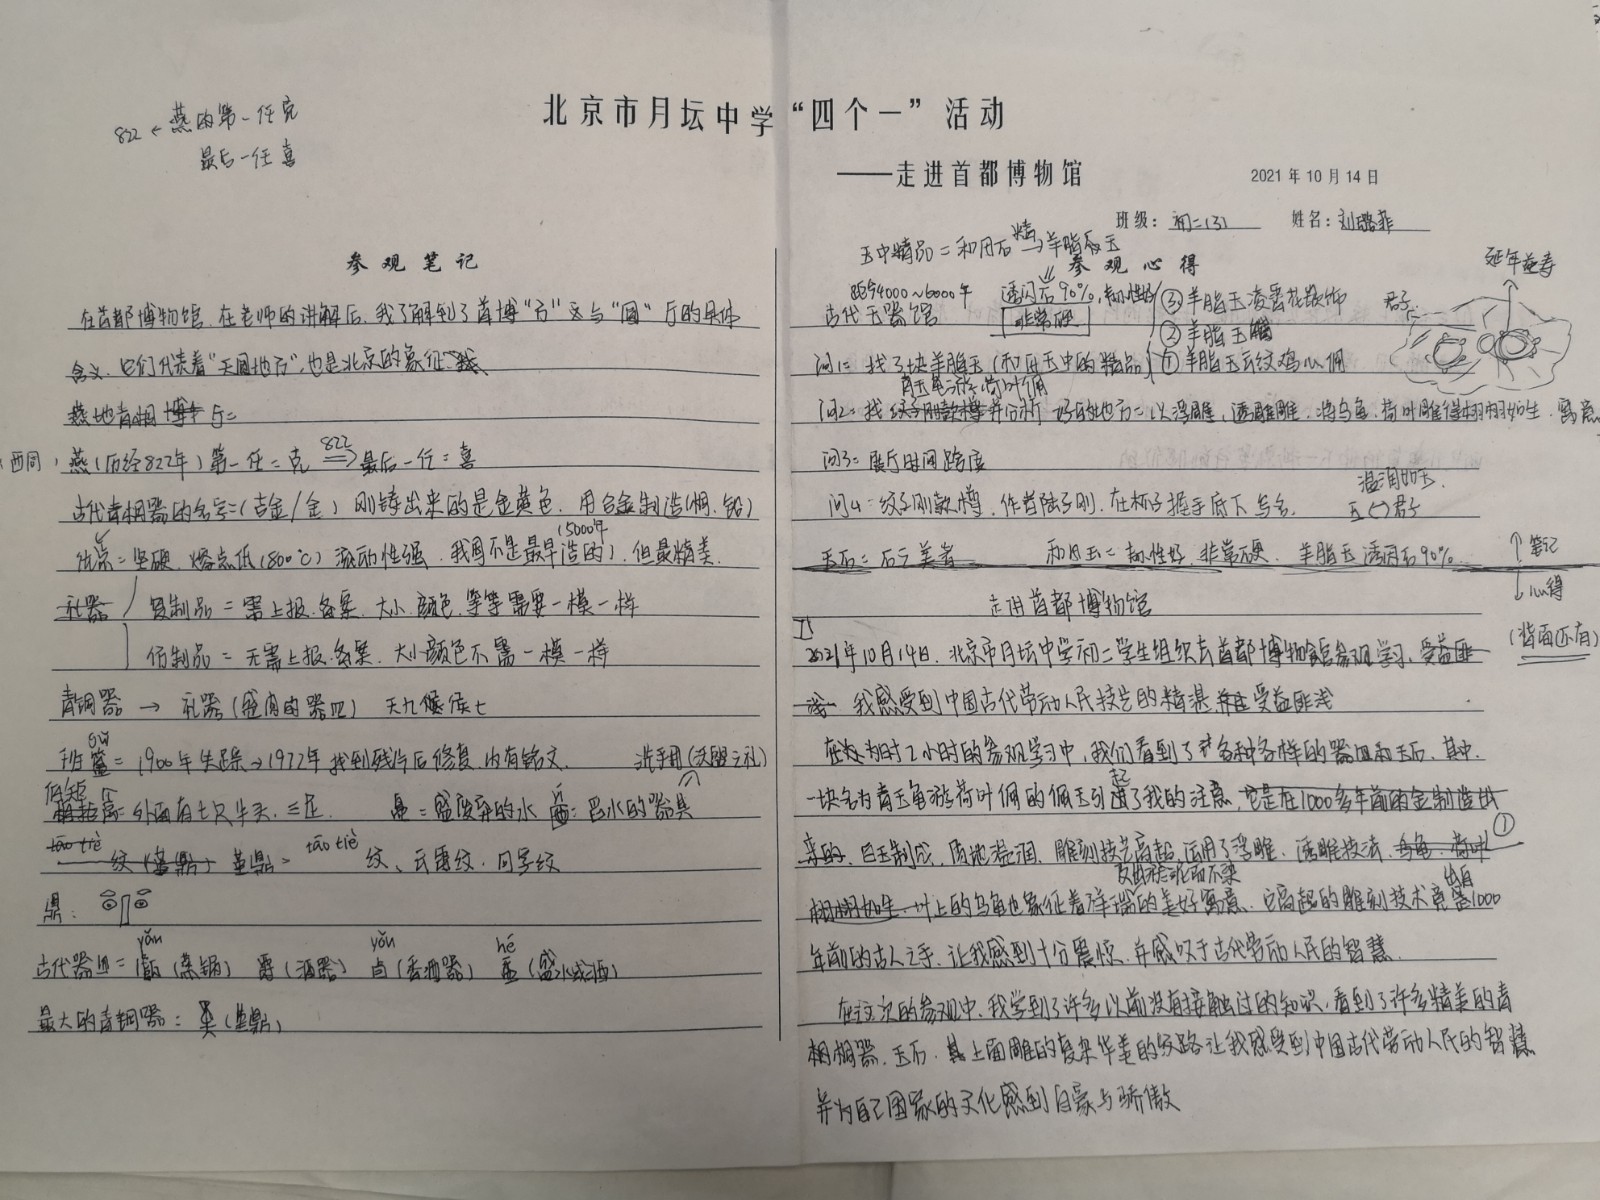 燕的第一任克
822 ←
最后一任喜
北京市月坛中学“四个一”活动
——走进首都博物馆
2021年10月14日
班级：初二(3) 姓名：刘璐菲
参观笔记
在首都博物馆，在老师的讲解后，我了解到了首博“方”与“圆”厅的具体
含义，它们代表着“天圆地方”，也是北京的象征
燕地青铜 厅=
西周
燕(历经822年) 第一任=克 822 最后一任=喜
古代青铜器的名字=(吉金/金) 刚铸出来的是金黄色，用合金制造(铜、铅)
(5000年
优点=坚硬、熔点低(800℃) 流动性强，我国不是最早造的)，但最精美.
礼器
复制品=需上报、备案，大小、颜色、等等需要一模一样
仿制品=无需上报、备案，大小颜色不需一模一样
青铜器 → 礼器(盛肉的器皿) 天九诸侯七
班簋=1900年失踪→1972年找到残片后修复，内有铭文.
洗手用(沃盥之礼)
伯矩鬲=外面有七只牛头，三足.
=盛废弃的水 匜：舀水的器具
tāo tiè 纹 堇鼎= tāo tiè 纹、云雷纹、回字纹
鼎：
yǎn yǒu hé
古代器皿=甗(蒸锅) 爵(酒器) 卣(香酒器) 盉(盛水或酒)
最大的青铜器： (堇鼎)
玉中精品=和田石 精→ 羊脂白玉
参观心得
延年益寿
距今4000~6000年
古代玉器馆
透闪石90%，韧性好
非常硬
③羊脂玉凌霄花嵌饰
②羊脂玉
①羊脂玉云纹鸡心佩
君子
问1=找3块羊脂玉(和田玉中的精品)
青玉龟游荷叶佩
问2=找 并分析 好的地方=以浮雕，透雕雕，将乌龟，荷叶雕得栩栩如生，寓意
问3=展厅时间跨度
问4=纹子刚款樽，作者陆子刚，在杯子握手底下写名.
温润如玉.
玉↔君子
玉石=石之美者 和田玉=韧性好，非常硬，羊脂玉透闪石90%.
↑笔记
↓心得
(背面还有)
走进首都博物馆
2021年10月14日，北京市月坛中学初二学生组织去首都博物馆参观学习，受益匪
浅 我感受到中国古代劳动人民技艺的精湛 受益匪浅
在为时2小时的参观学习中，我们看到了多种各样的器皿和玉石，其中，
一块名为青玉龟游荷叶佩的佩玉引起了我的注意，它是在1000多年前的金制造出
来的，白玉制成，质地温润，雕刻技艺高超，运用了浮雕、透雕技法，乌龟、荷叶
①
栩栩如生，叶上的乌龟也象征着祥瑞的美好寓意，它高超的雕刻技术竟出自1000
年前的古人之手，让我感到十分震惊，并感叹于古代劳动人民的智慧.
在这次的参观中，我学到了许多以前没有接触过的知识，看到了许多精美的青
铜器、玉石，其上面雕的复杂华美的纹路让我感受到中国古代劳动人民的智慧
并为自己国家的文化感到自豪与骄傲